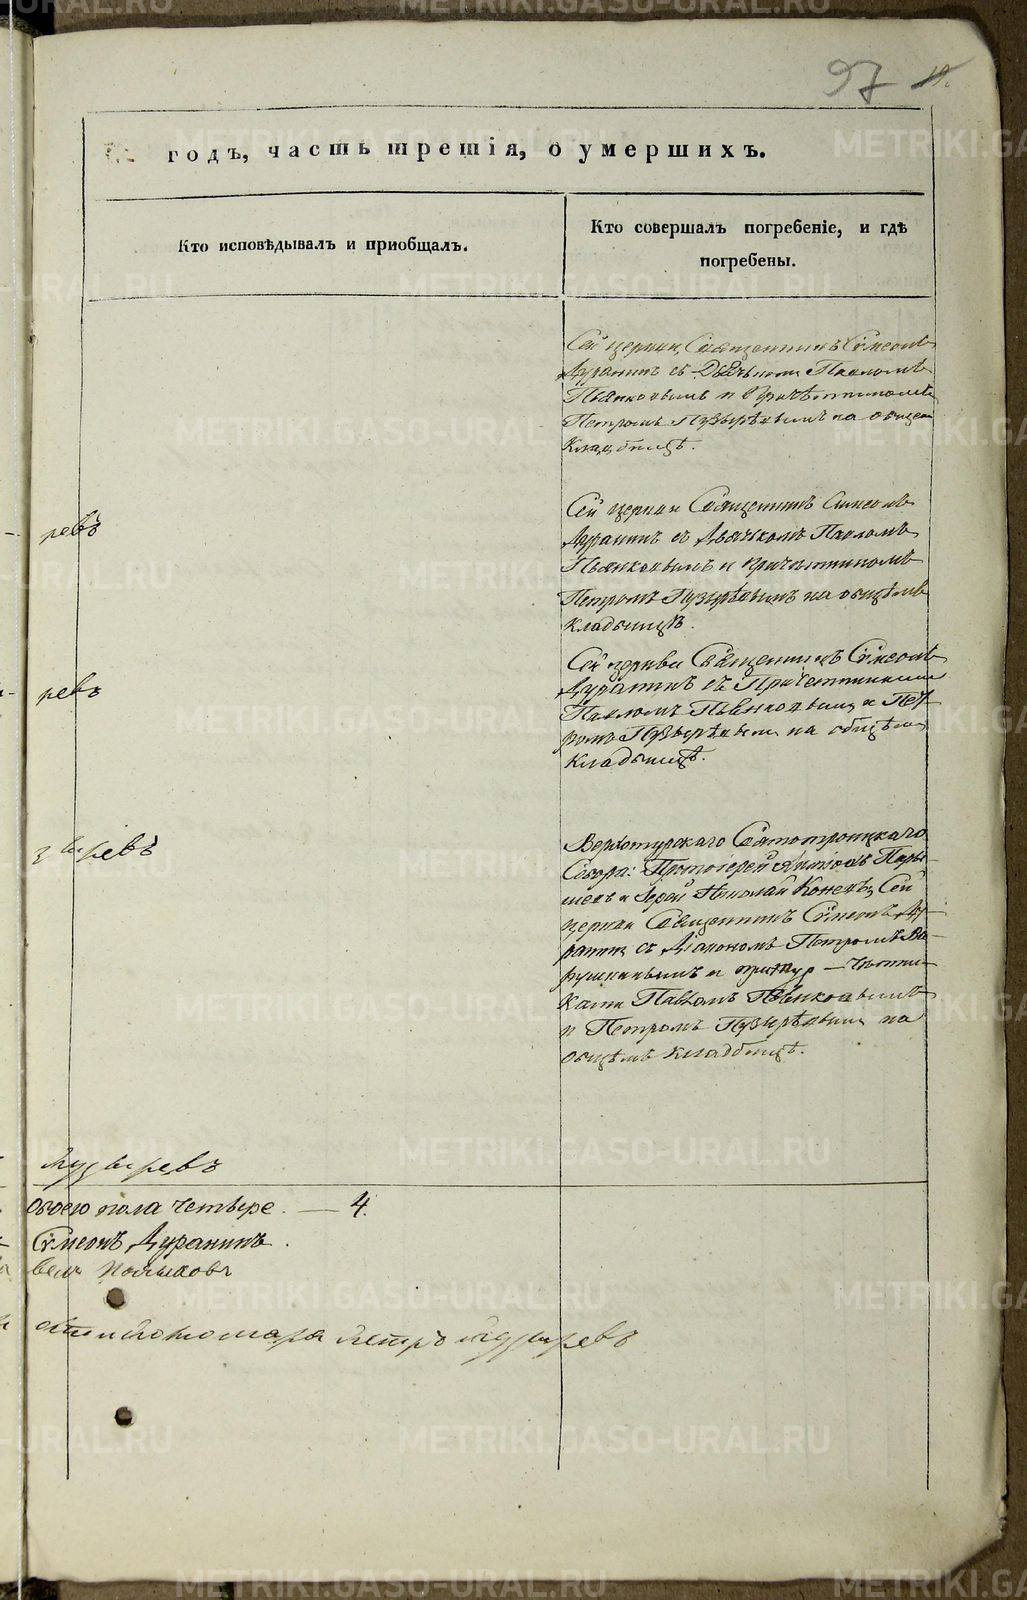 97 19.
годъ, часть третія, о умершихъ.
Кто исповѣдывалъ и пріобщалъ.
Кто совершалъ погребеніе, и гдѣ
погребены.
Сей церкви Священникъ Сѵмеонъ
Дуранинъ съ Дьячкомъ Павломъ
Пьянковымъ и Причетникомъ
Петромъ Пузырѣвымъ на общем
Кладбищѣ.
ревъ
Сей церкви Священникъ Симеонъ
Дуранинъ съ Дьячкомъ Павломъ
Пьянковымъ и Причетникомъ
Петромъ Пузырѣвымъ на общемъ
кладбищѣ.
ревъ
Сей церкви Священникъ Сѵмеонъ
Дуранинъ съ Причетниками
Павломъ Пьянковым и Пет
ромъ Пузырѣвым на общѣм
Кладбищѣ.
зыревъ
Верхотурскаго Святотроицкаго
Собора: Протоіерей
и Іерей Николай Сей
церкви Священникъ Сѵмеонъ Ду
ранин съ Діакономъ Петромъ
и причетни
ками Павломъ Пьянковымъ
и Петромъ Пузырѣвым на
общѣмъ кладбищѣ.
Пузыревъ
обоего пола четыре. — 4.
Сѵмеонъ Дуранинъ.
Петръ Пузыревъ
METRIKI.GASO-URAL.RU